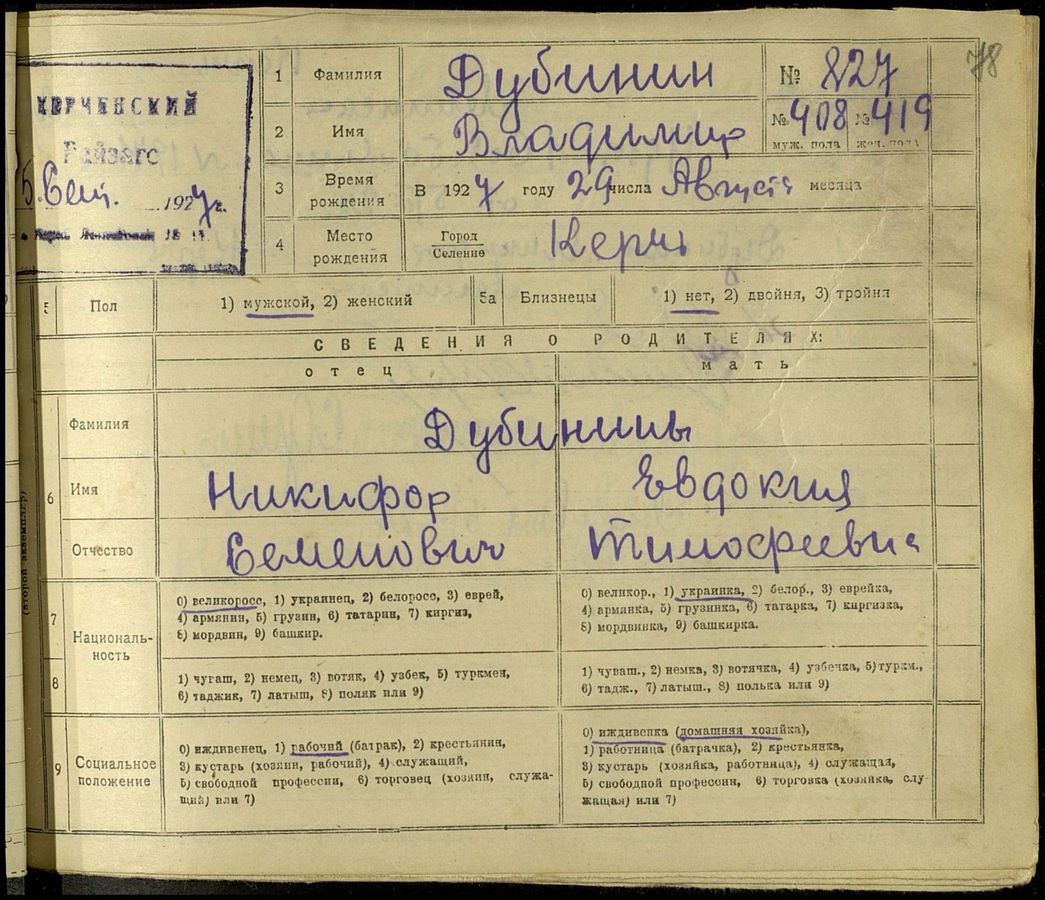 78
КЕРЧЕНСКИЙ
Райзагс
5. Сен. 1927 г.
1 Фамилия Дубинин № 827
2 Имя Владимир № 408 муж. пола № 419 жен. пола
3 Время рождения В 1927 году 29 числа Августа месяца
4 Место рождения Город Селение Керчь
5 Пол 1) мужской, 2) женский 5а Близнецы 1) нет, 2) двойня, 3) тройня
СВЕДЕНИЯ О РОДИТЕЛЯХ:
отец мать
Фамилия Дубинины
6 Имя Никифор Евдокия
Отчество Семенович Тимофеевна
(второй экземпляр)
7 Националь-
ность
0) великоросс, 1) украинец, 2) белоросс, 3) еврей,
4) армянин, 5) грузин, 6) татарин, 7) киргиз,
8) мордвин, 9) башкир.
0) великор., 1) украинка, 2) белор., 3) еврейка,
4) армянка, 5) грузинка, 6) татарка, 7) киргизка,
8) мордвинка, 9) башкирка.
8
1) чуваш, 2) немец, 3) вотяк, 4) узбек, 5) туркмен,
6) таджик, 7) латыш, 8) поляк или 9)
1) чуваш., 2) немка, 3) вотячка, 4) узбечка, 5) туркм.,
6) тадж., 7) латыш., 8) полька или 9)
9 Социальное
положение
0) иждивенец, 1) рабочий (батрак), 2) крестьянин,
3) кустарь (хозяин, рабочий), 4) служащий,
5) свободной профессии, 6) торговец (хозяин, служа-
щий) или 7)
0) иждивенка (домашняя хозяйка),
1) работница (батрачка), 2) крестьянка,
3) кустарь (хозяйка, работница), 4) служащая,
5) свободной профессии, 6) торговка (хозяйка, слу
жащая) или 7)